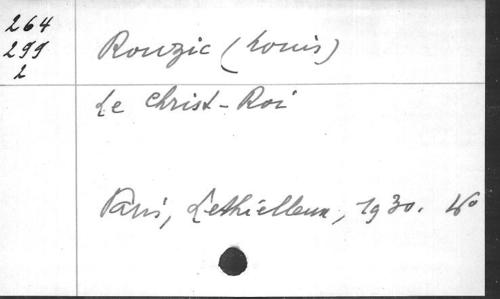 264
299
2
Rouzic (Louis)
Le Christ-Roi
Paris, Lethielleux, 1930.